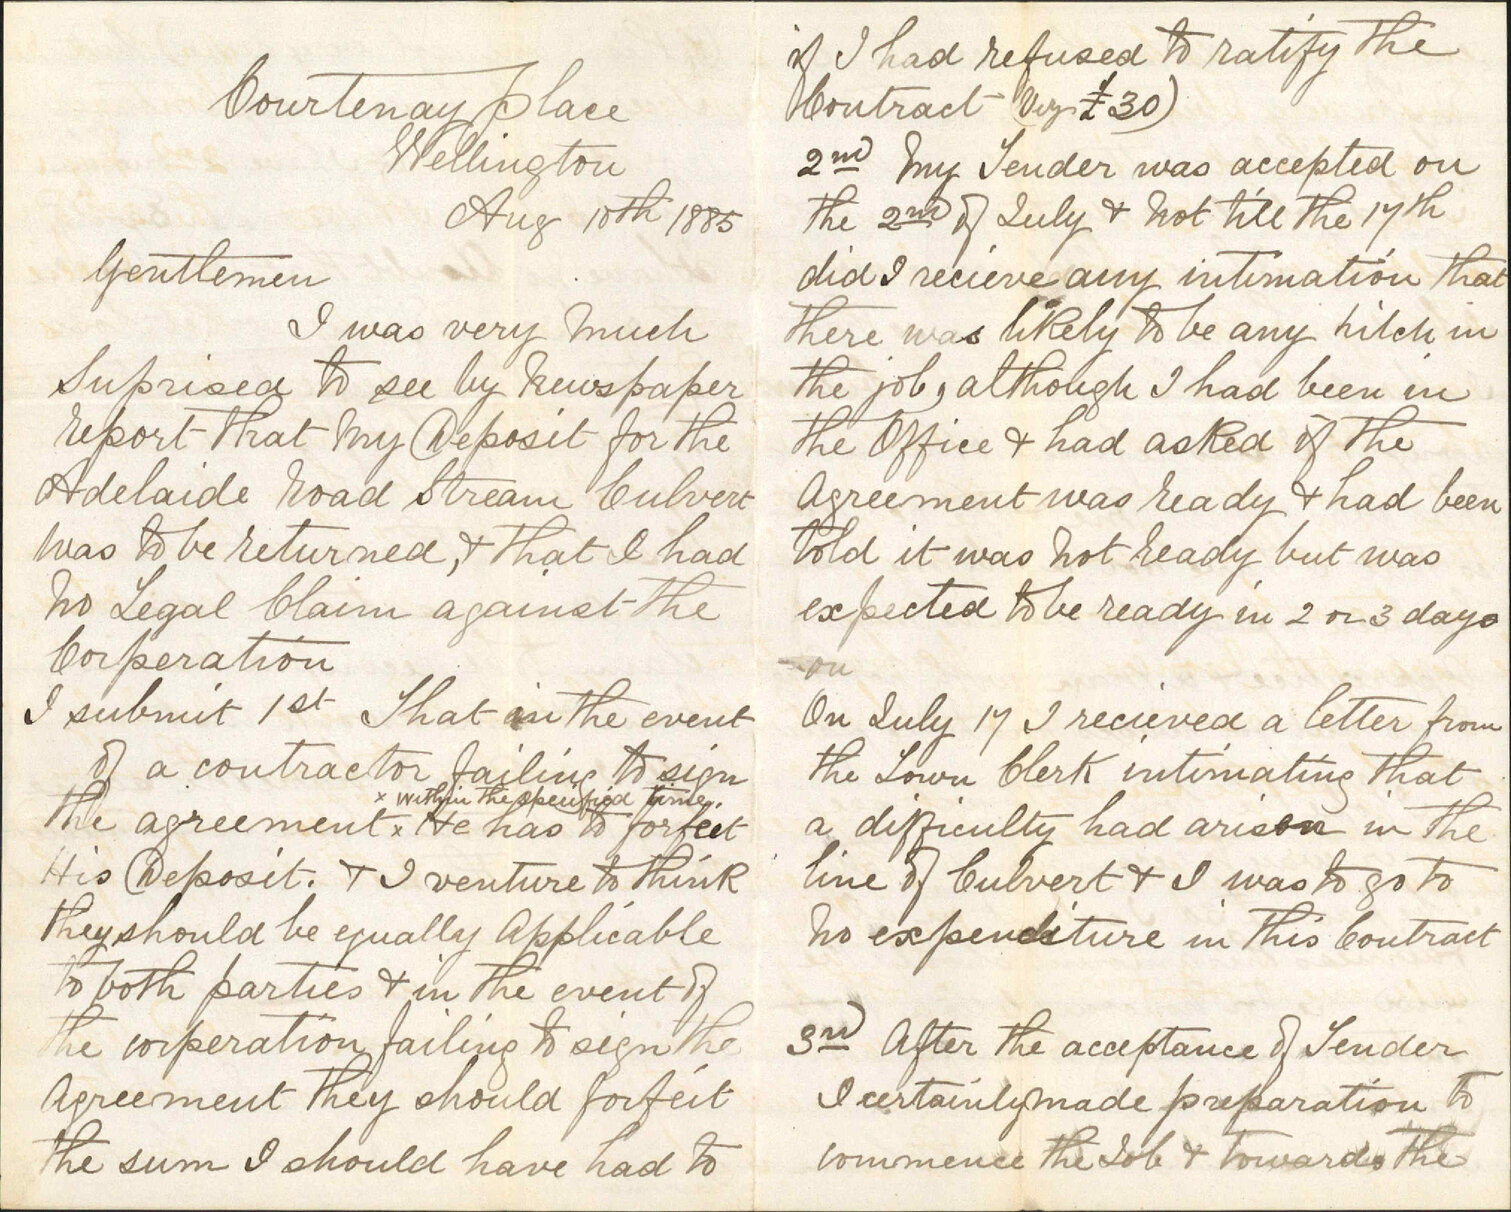 Courtenay place
Wellington
Aug 10th 1885
Gentlemen
I was very much
Suprised to see by Newspaper
report that My Deposit for the
Adelaide Road Stream Culvert
was to be returned, & that I had
No Legal Claim against the
Corperation
I submit 1st That in the event
of a contractor failing to sign
x within the specified time.
the agreement x He has to forfeit
His Deposit. & I venture to think
they should be equally Applicable
to both parties & in the event of
the corperation failing to sign the
Agreement they should forfeit
the sum I should have had to
if I had refused to ratify the
Contract (Viz £30)
2nd My Tender was accepted on
the 2nd of July & Not till the 17th
did I recieve any intimation that
there was likely to be any hitch in
the job, although I had been in
the Office & had asked if the
Agreement was ready & had been
told it was Not ready but was
expected to be ready in 2 or 3 days
on
On July 17 I recieved a letter from
the Town Clerk intimating that
a difficulty had arisen in the
line of Culvert & I was to go to
No expenditure in this Contract
3rd After the acceptance of Tender
I certainly made preparation to
commence the Job & towards the